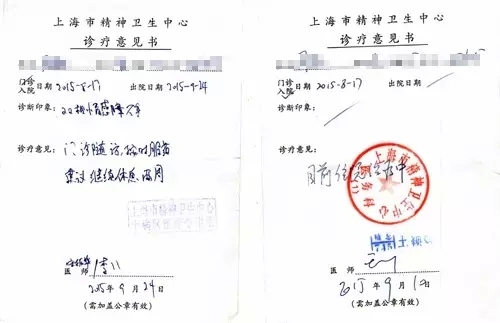 上海市精神卫生中心
诊疗意见书
门诊
入院日期 2015-8-17 出院日期 2015-9-24
诊断印象：双相情感障碍
诊疗意见：门诊随访，按时服药
建议继续休息两周
上海市精神卫生中心
医师
2015年9月24日
(需加盖公章有效)
上海市精神卫生中心
诊疗意见书
门诊
入院日期 2015-8-17 出院日期
诊断印象：
诊疗意见：
目前住院治疗中
上海市精神卫生中心
医务科
医师
2015年9月1日
(需加盖公章有效)